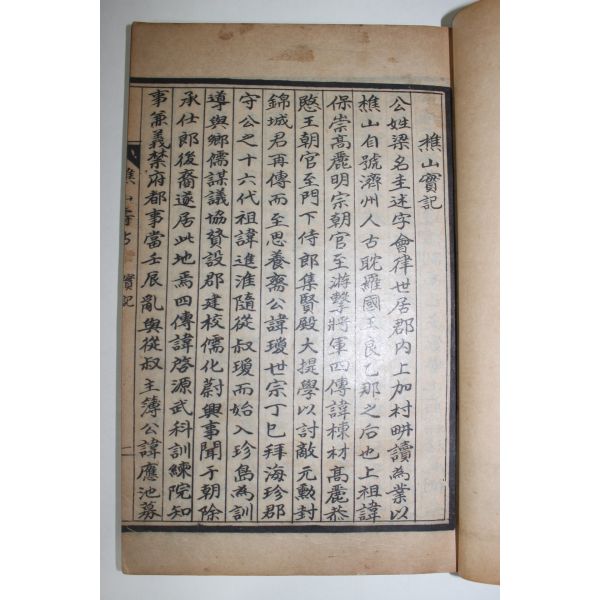 樵山實記
公姓梁名圭述字會律世居郡內上加村畊讀為業以
樵山自號濟州人古耽羅國王良乙那之后也上祖諱
保崇高麗明宗朝官至游擊將軍四傳諱棟材高麗恭
愍王朝官至門下侍郎集賢殿大提學以討敵元勳封
錦城君再傳而至思養齋公諱瓊世宗丁巳拜海珍郡
守公之十六代祖諱進淮隨從叔瓊而始入珍島為訓
導與鄉儒謀議協賛設郡建校儒化蔚興事聞于朝除
承仕郎後裔遂居此地焉四傳諱啓源武科訓練院知
事兼義禁府都事當壬辰亂與從叔主簿公諱應池募
樵山 實記
一